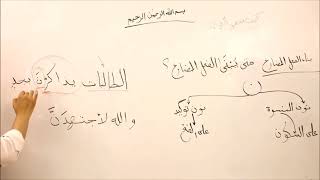 بسم الله الرحمن الرحيم
بناء الفعل المضارع متى يُبنَى الفعل المضارع؟
(ن)
نون النسوة
على السُّكون
نون توكيد
على الفتح
الطالبات يذاكرْنَ بجد
والله لأجتهدَنَّ